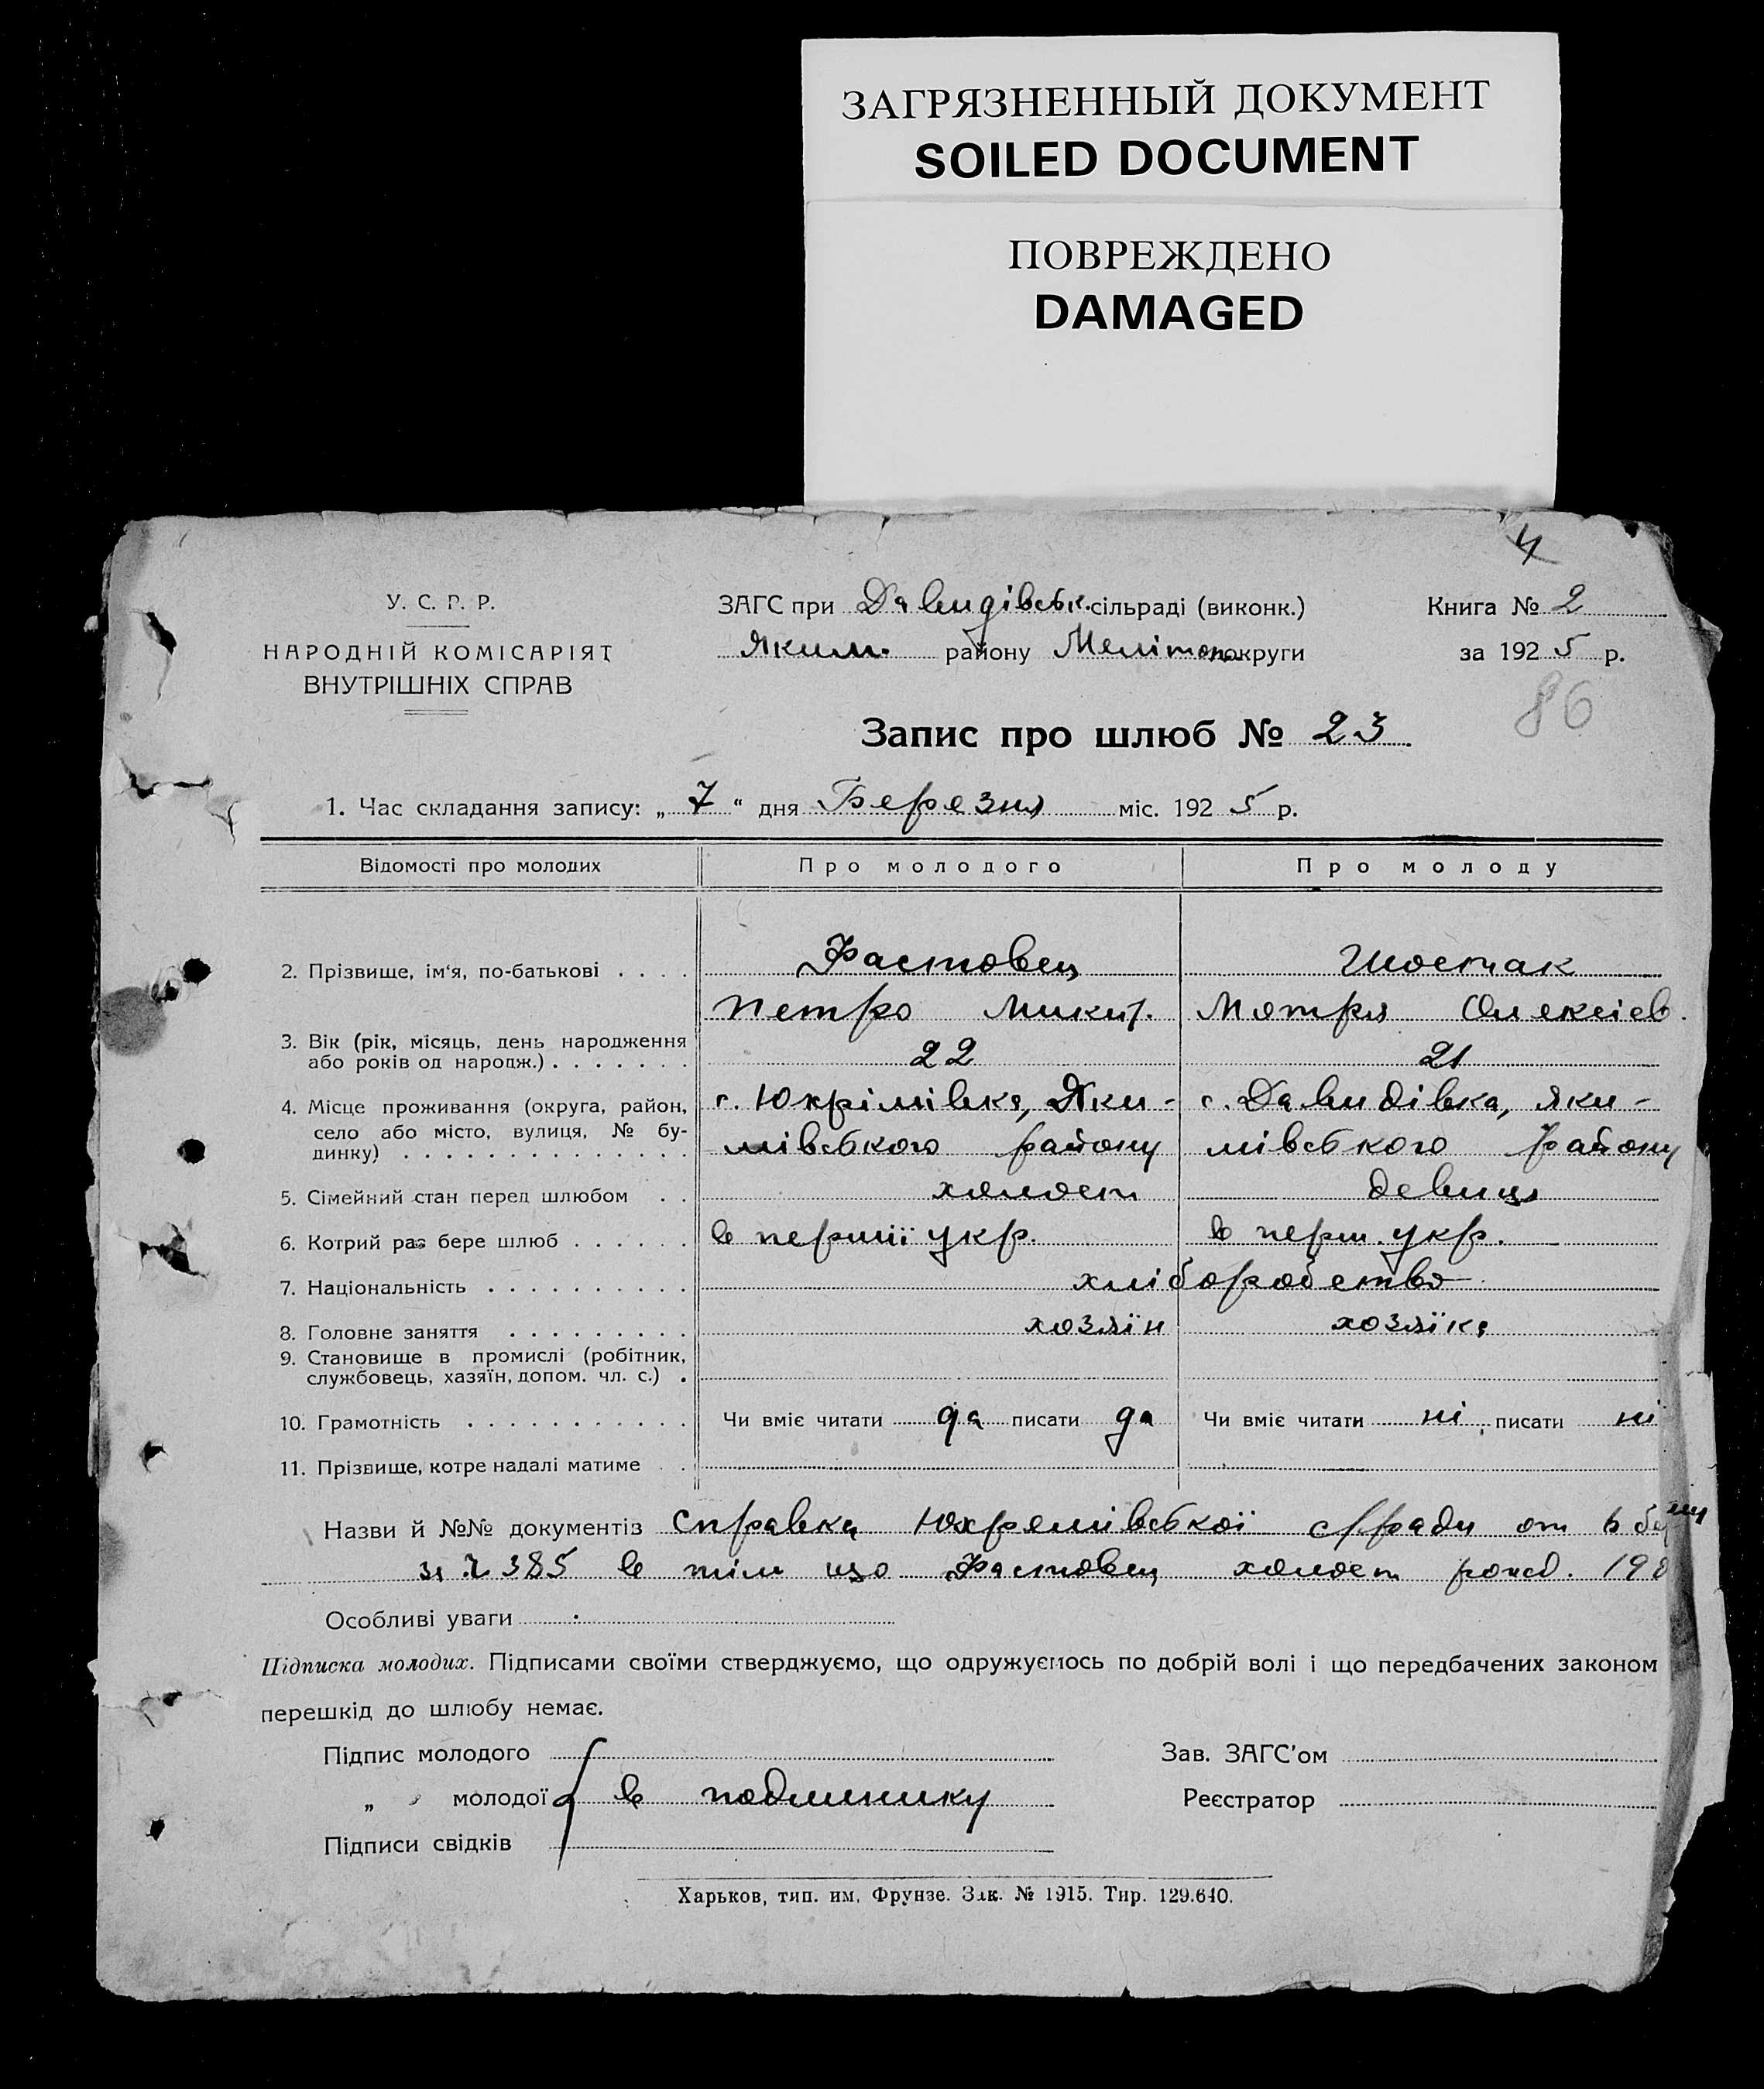 ЗАГРЯЗНЕННЫЙ ДОКУМЕНТ
SOILED DOCUMENT
ПОВРЕЖДЕНО
DAMAGED
4
У. С. Р. Р.
НАРОДНІЙ КОМІСАРІЯТ
ВНУТРІШНІХ СПРАВ
ЗАГС при Давидівськ. сільраді (виконк.)
Яким. району Мелітоп. округи
Книга № 2
за 1925 р.
86
Запис про шлюб № 23
1. Час складання запису: „7“ дня Березня міс. 1925 р.
Відомості про молодих
Про молодого
Про молоду
2. Прізвище, ім'я, по-батькові . . . .
Фастовец
Шостак
Петро Микит.
Мотря Олексіев.
3. Вік (рік, місяць, день народження
або років од народж.) . . . . . . .
22
21
4. Місце проживання (округа, район,
село або місто, вулиця, № бу-
динку) . . . . . . . . . . . . . .
с. Юхрімівка, Яки-
мівського району
с. Давидівка, Яки-
мівського району
5. Сімейний стан перед шлюбом . .
холост
девиця
6. Котрий раз бере шлюб . . . . . .
в перший укр.
в перш. укр.
7. Національність . . . . . . . . . .
хліборобство
8. Головне заняття . . . . . . . . .
хозяїн
хозяїка
9. Становище в промислі (робітник,
службовець, хазяїн, допом. чл. с.) .
10. Грамотність . . . . . . . . . . .
Чи вміє читати да писати да
Чи вміє читати ні писати ні
11. Прізвище, котре надалі матиме . .
Назви й №№ документів Справка Юхремівської с/ради от 6
за № 385 в тім що Фастовец холост рожд. 190
Особливі уваги
Підписка молодих. Підписами своїми стверджуємо, що одружуємось по добрій волі і що передбачених законом
перешкід до шлюбу немає.
Підпис молодого
„ молодої в подлинику
Підписи свідків
Зав. ЗАГС'ом
Реєстратор
Харьков, тип. им. Фрунзе. Зак. № 1915. Тир. 129.640.